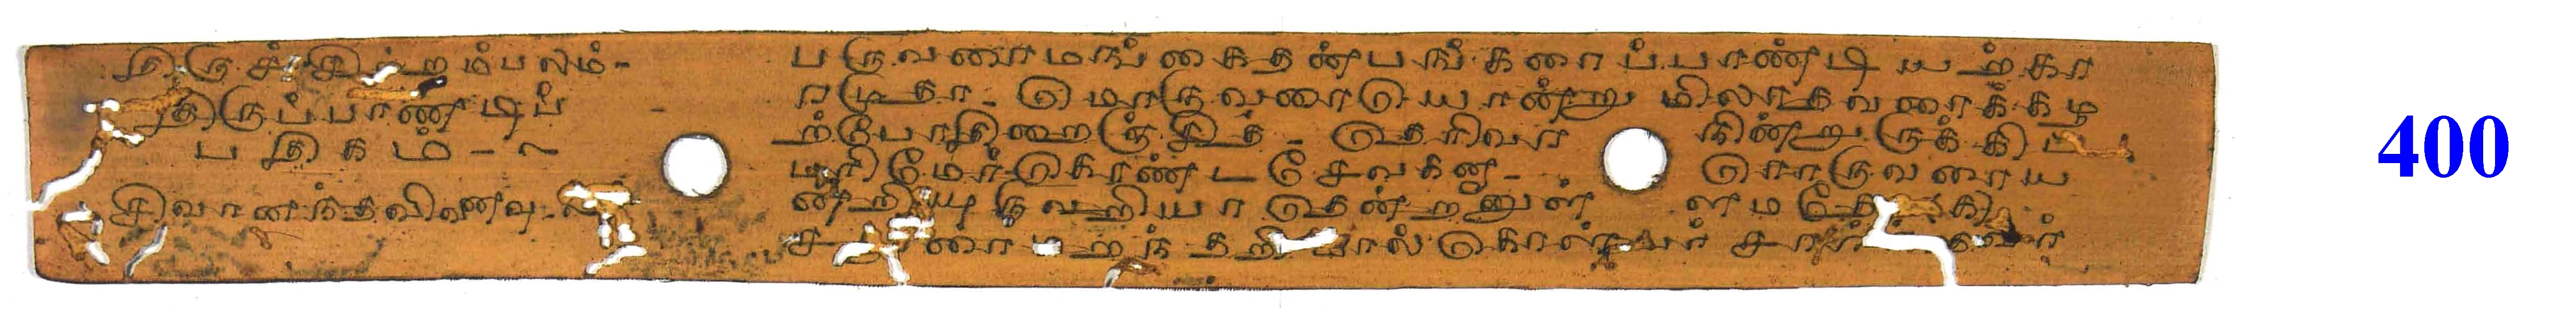 திருச்சிற்றம்பலம்-
திருப்பாண்டிப்
பதிகம் - ~
சிவானந்தவிளைவு-
பருவரைமங்கைதன்பங்கரைப்பாண்டியற்கா
ரமுதா- மொருவரையொன்று மிலாதவரைக்கழ
ற்போதிறைஞ்சித- தெரிவர நின்றுருக்கி
பரிமேற்கொண்டசேவகனு- மொருவரைய
ன்றியுருவறியாதென்றனுள்ளமதே
ச மறந்தறி பால்கொள்பவர்
400